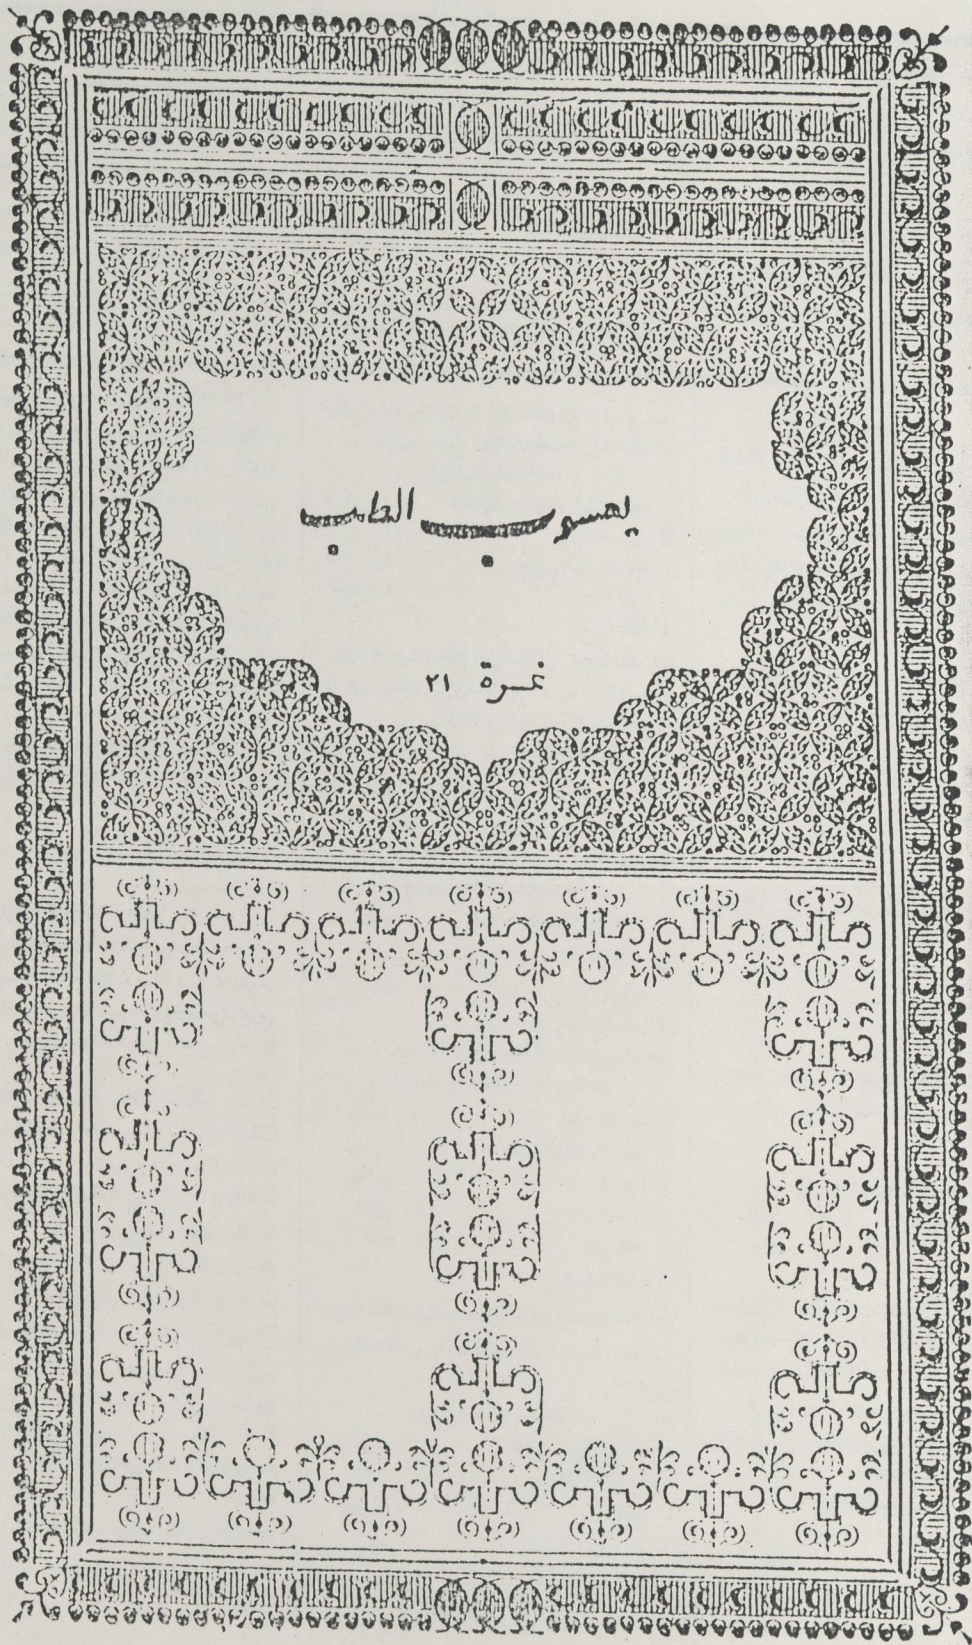 يعسوب الطب
نمرة ٢١